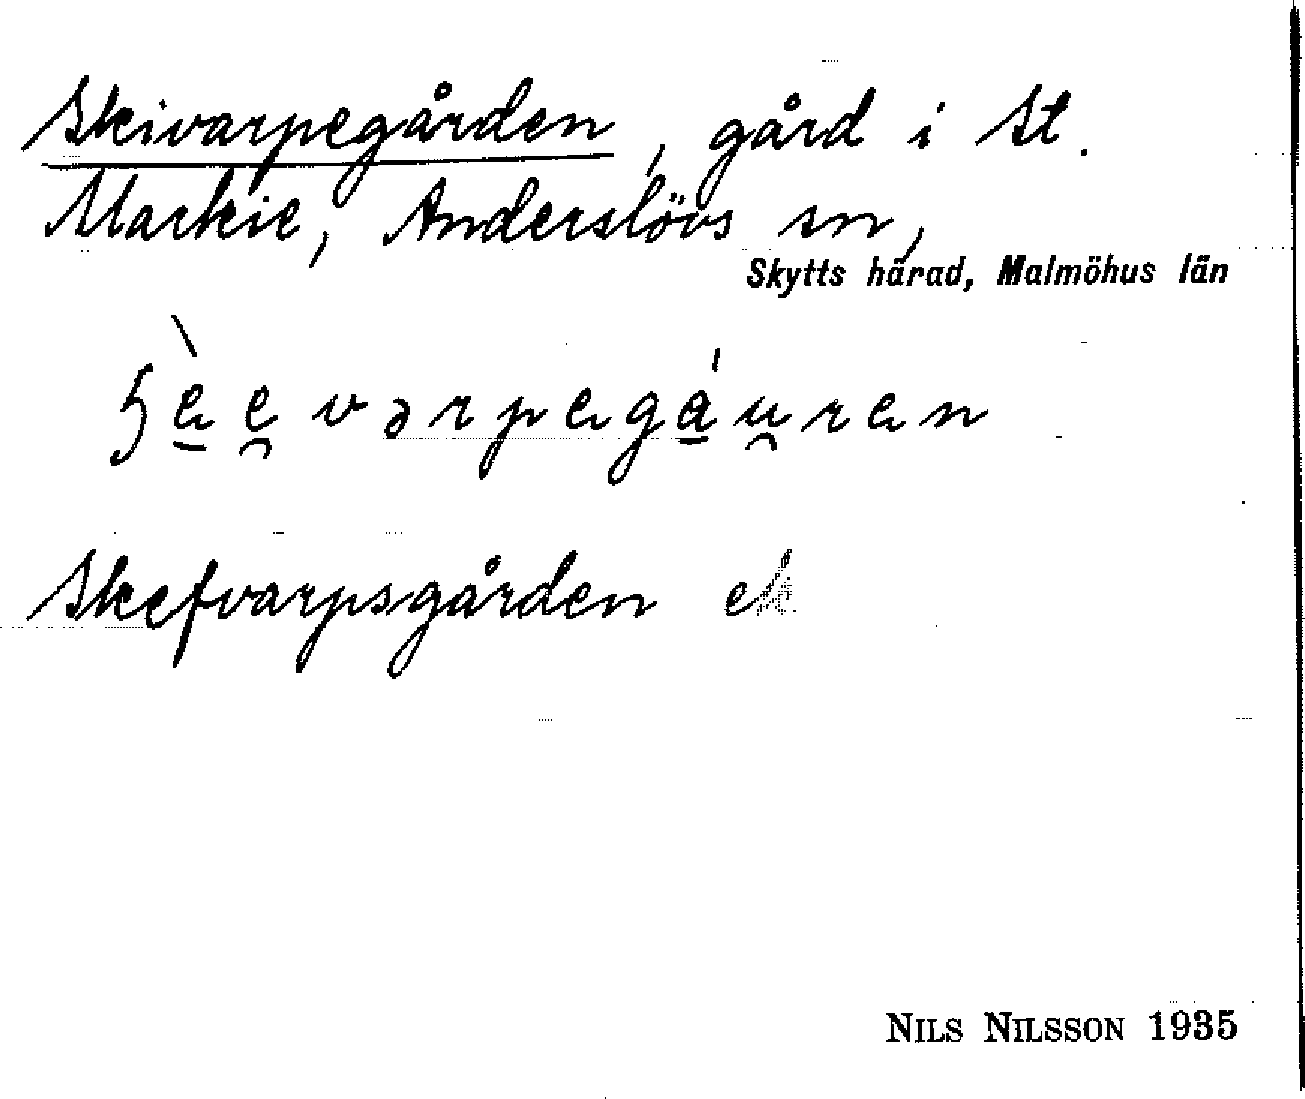 Skivarpegården, gård i St.
Markie, Anderslövs sn,
Skytts härad, Malmöhus län
Skefvarpsgården ek.
NILS NILSSON 1935